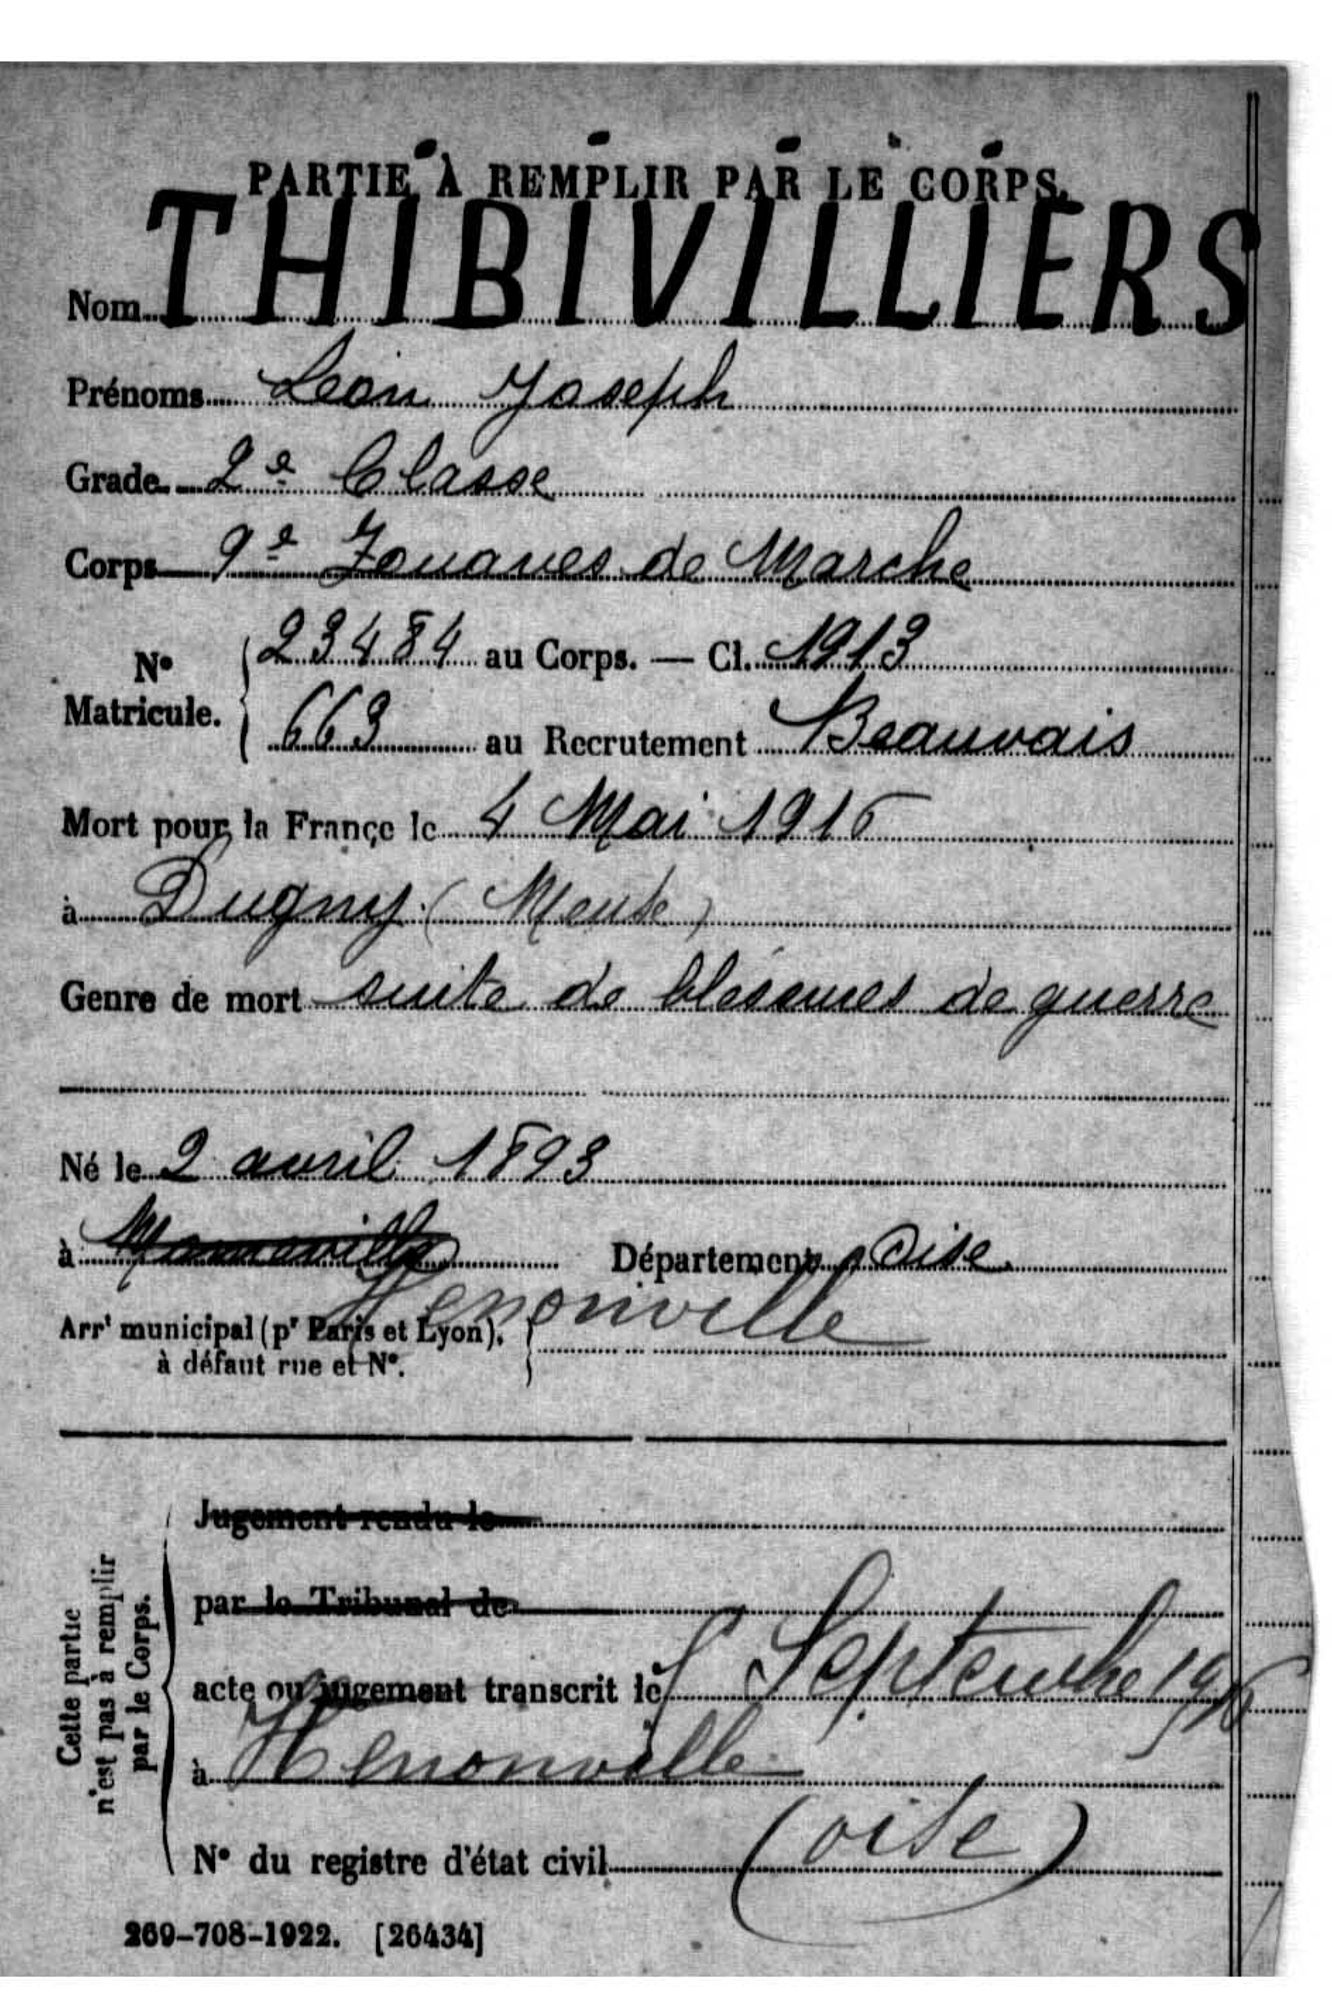 PARTIE À REMPLIR PAR LE CORPS.
Nom THIBIVILLIERS
Prénoms Léon Joseph
Grade 2e Classe
Corps 9e Zouaves de Marche
No Matricule. { 23484 au Corps. — Cl. 1913
663 au Recrutement Beauvais
Mort pour la France le 4 Mai 1916
à Dugny (Meuse)
Genre de mort suite de blessures de guerre
Né le 2 avril 1893
à Département Oise
Henonville
Arrt municipal (pr Paris et Lyon), à défaut rue et No.
Cette partie n'est pas à remplir par le Corps.
Jugement rendu le
par le Tribunal de
acte ou jugement transcrit le Septembre 1916
à Henonville
(oise)
No du registre d'état civil
269-708-1922. [26434]